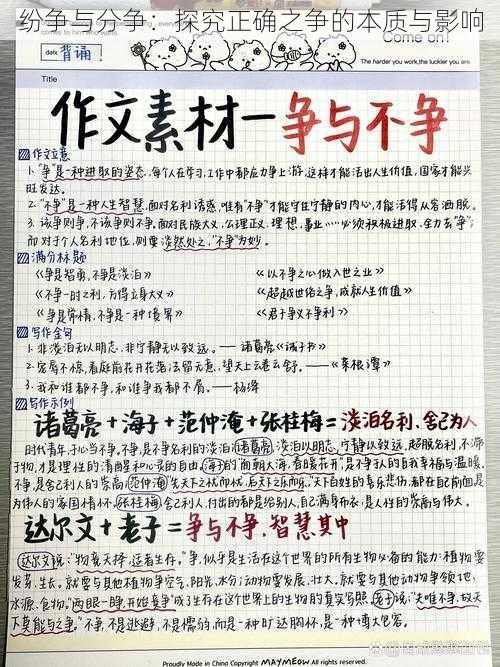 纷争与分争：探究正确之争的本质与影响
date:
背诵
Come on!
The harder you work,the luckier you are.
Title
作文素材一争与不争
作文立意
1."争"是一种进取的姿态,每个人在学习、工作中都应力争上游,这样才能活出人生价值,国家才能兴
旺发达。
2."不争"是一种人生智慧,面对名利诱惑,唯有"不争"才能守住宁静的内心,才能活得从容洒脱。
3.该争则争,不该争则不争。面对民族大义,公理正义,理想,事业……必须积极进取、全力去"争";
而对于个人名利地位,则要淡然处之,"不争"为妙。
满分标题
《争是智勇,不争是淡泊》
《以不争之心做入世之业》
《不争一时之利,方得立身大义》
《超越世俗之争,成就人生价值》
《争是常情,不争是一种境界》
《君子争义不争利》
写作金句
1.非淡泊无以明志,非宁静无以致远。——诸葛亮《诫子书》
2.宠辱不惊,看庭前花开花落;去留无意,望天上云卷云舒。——《菜根谭》
3.我和谁都不争,和谁争我都不屑。——杨绛
写作示例
诸葛亮+海子+范仲淹+张桂梅=淡泊名利、舍己为人
时代青年,于心当不争。不争,是不争名利的淡泊。诸葛亮,淡泊以明志,宁静以致远,超脱名利,不滞
于物,才是理性的清醒和心灵的自由。海子的"面朝大海,春暖花开",是不争于人的自我幸福与温暖。
不争,是舍己利人的崇高。范仲淹"先天下之忧而忧,后天下之乐而乐",天下百姓的喜乐悲伤,都在己前面,是
为伟人的家国情怀。张桂梅,舍己利人,付出的都是给别人,自己满身布衣,是人性的崇高与伟大。
达尔文+老子=争与不争,智慧其中
达尔文说:"物竞天择,适者生存。"争,似乎是生活在这个世界的所有生物必备的能力:植物要
发芽、生长。就要与其他植物争空气、阳光、水分;动物要发展、壮大,就要与其他动物争领地、
水源、食物。"两眼一睁,开始竞争"成了生存在这个世界上的生物的真实写照。老子说:"夫唯不争,故天
下莫能与之争。"不争,不是逃避、不是懦弱,而是一种旷达胸怀,是一种博大包容。
Proudly Made in China Copyright by MAYMEOW All rights reserved.